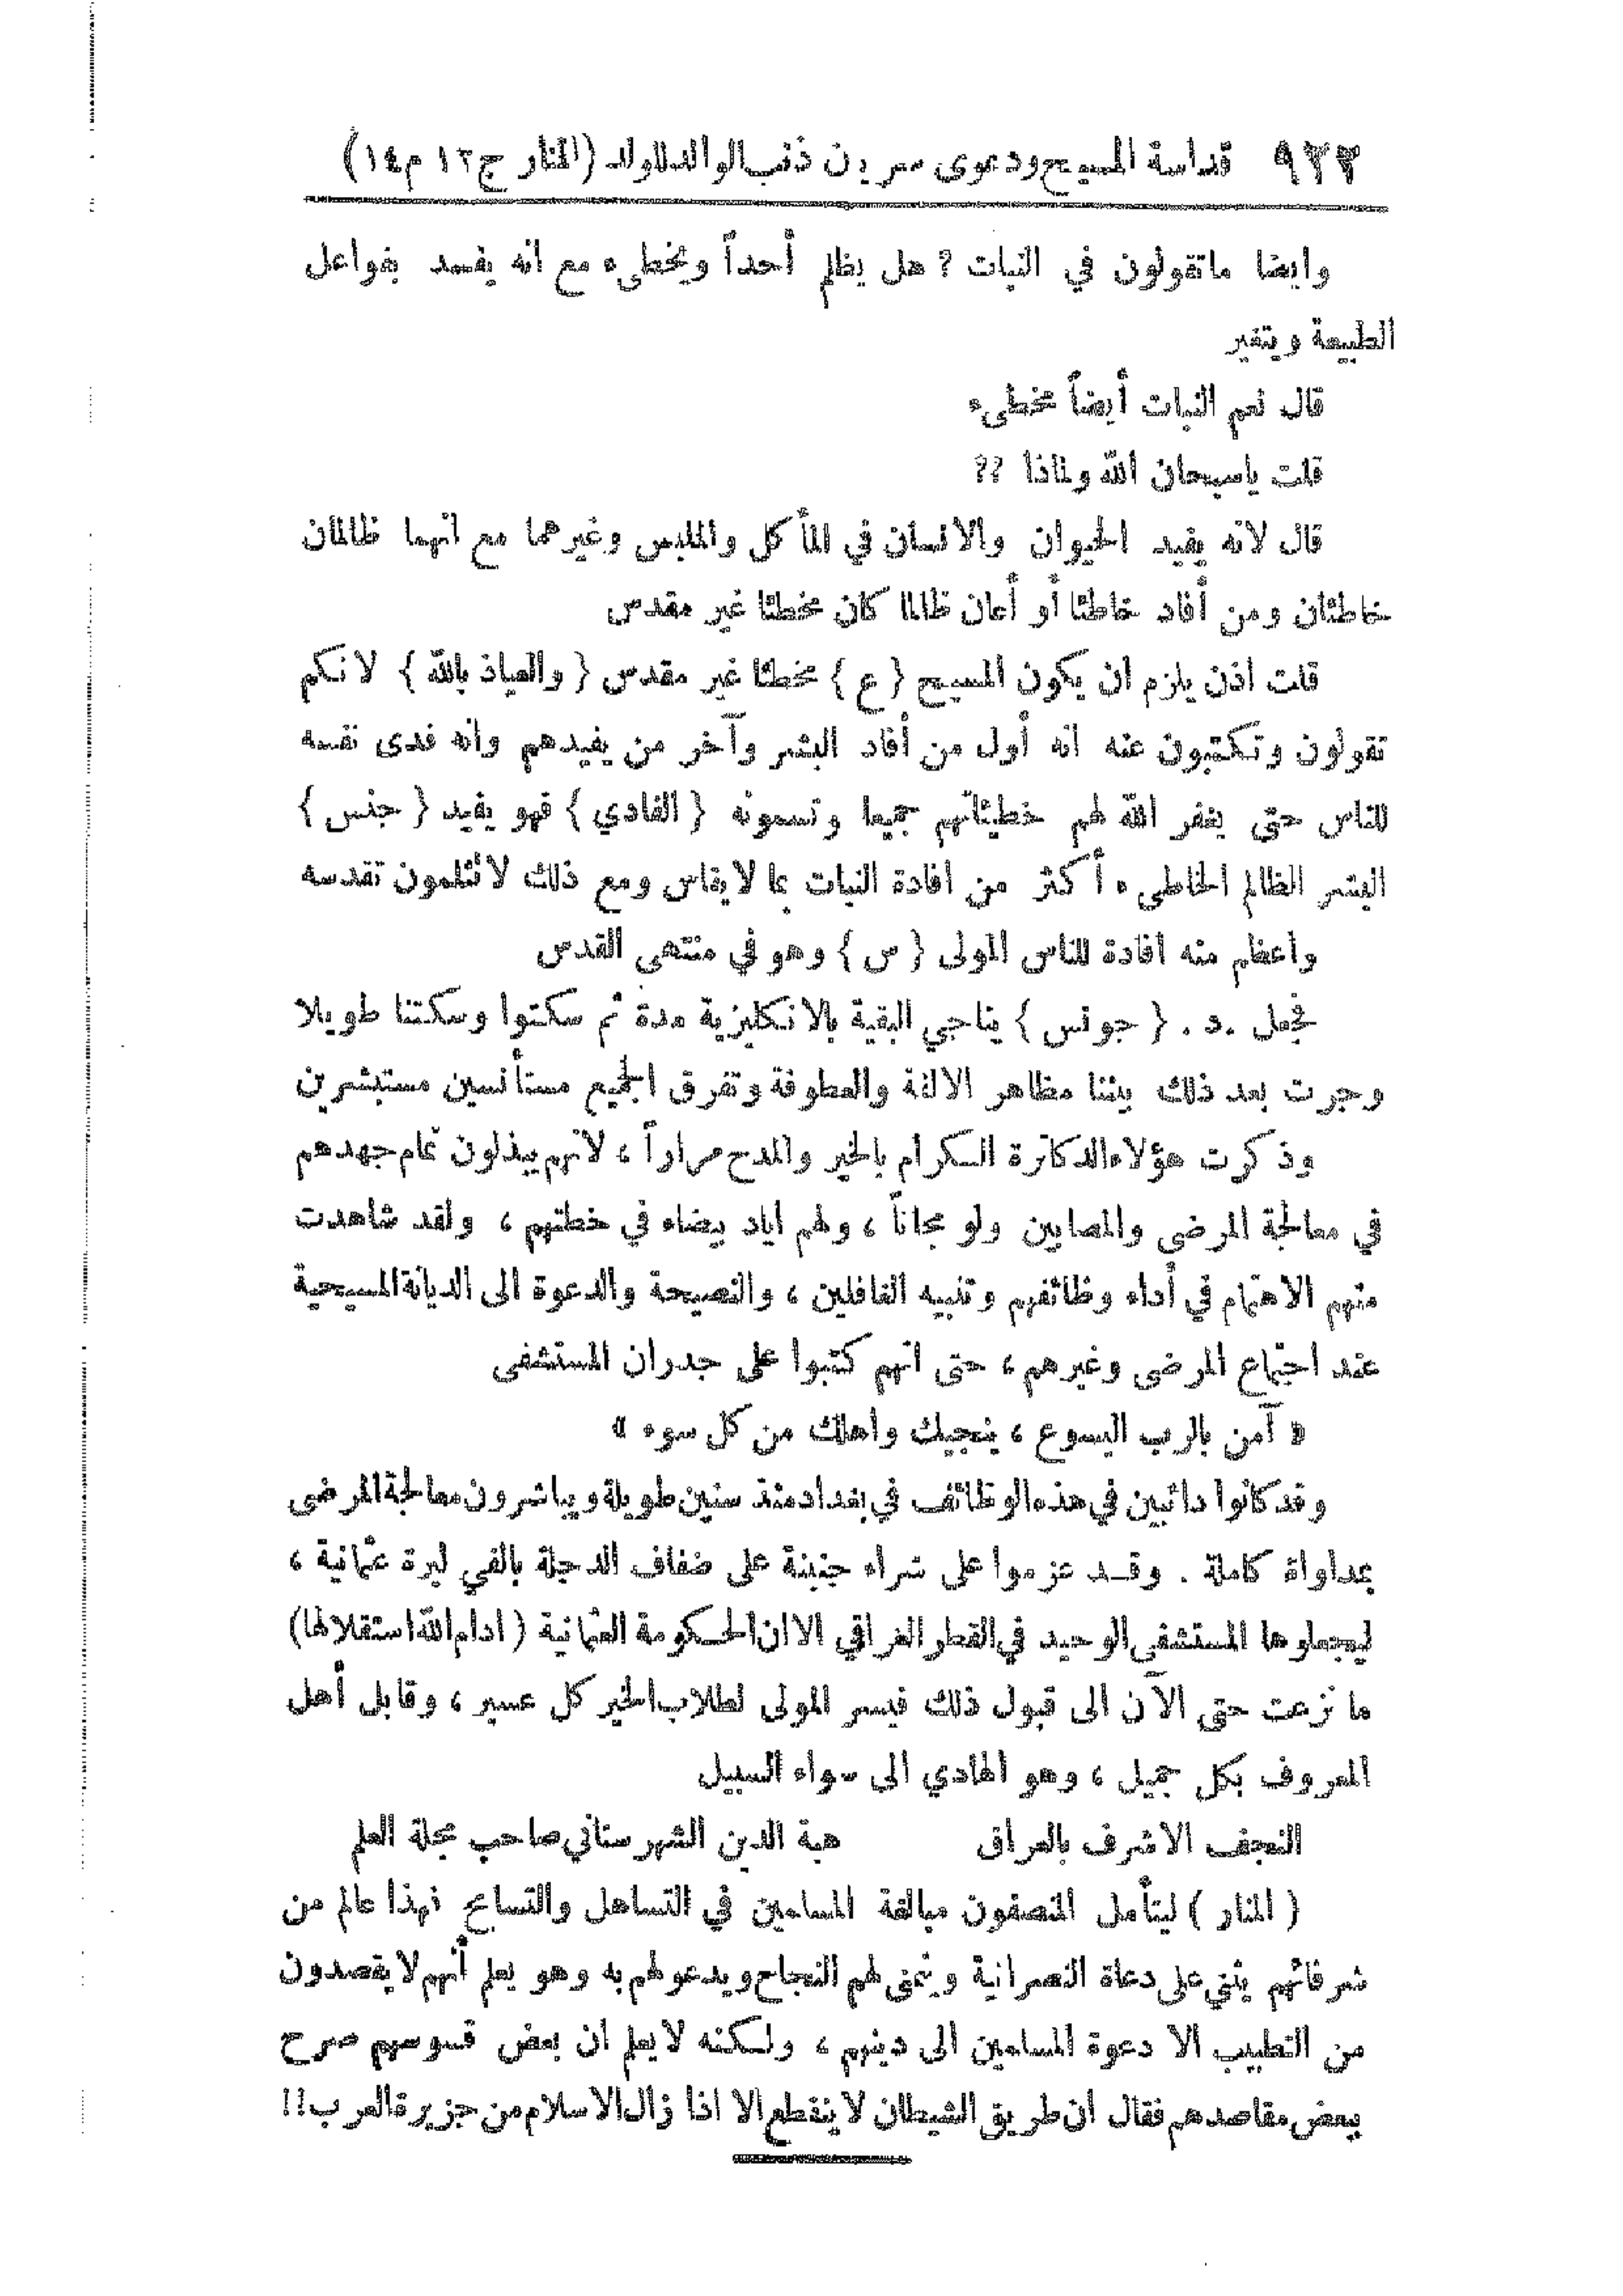 ٩٢٢ قداسة المسيح ودعوى سريان ذنب الوالد للاولاد (المنار ج١٢ م١٤)
وايضا ماتقولون في النبات ? هل يظلم أحداً ويخطىء مع انه يفسد بفواعل
الطبيعة ويتغير
قال نعم النبات أيضاً مخطىء
قلت ياسبحان الله ولماذا ??
قال لانه يفيد الحيوان والانسان في المأكل والملبس وغيرهما مع انهما ظالمان
خاطئان ومن أفاد خاطئا أو أعان ظالما كان مخطئا غير مقدس
قلت اذن يلزم ان يكون المسيح {ع} مخطئا غير مقدس {والعياذ بالله} لانكم
تقولون وتكتبون عنه انه أول من أفاد البشر وآخر من يفيدهم وانه فدى نفسه
للناس حتى يغفر الله لهم خطيئاتهم جميعا وتسمونه {الفادي} فهو يفيد {جنس}
البشر الظالم الخاطىء أكثر من افادة النبات بما لايقاس ومع ذلك لاتثلمون تقدسه
واعظم منه افادة للناس المولى {س} وهو في منتهى القدس
فجعل .د. {جونس} يناجي البقية بالانكليزية مدة ثم سكتوا وسكتنا طويلا
وجرت بعد ذلك بيننا مظاهر الالفة والعطوفة وتفرق الجميع مستأنسين مستبشرين
وذكرت هؤلاء الدكاترة الكرام بالخير والمدح مراراً ، لانهم يبذلون تمام جهدهم
في معالجة المرضى والمصابين ولو مجاناً ، ولهم اياد بيضاء في خطتهم ، ولقد شاهدت
منهم الاهتمام في أداء وظائفهم وتنبيه الغافلين ، والنصيحة والدعوة الى الديانة المسيحية
عند اجتماع المرضى وغيرهم ، حتى انهم كتبوا على جدران المستشفى
« آمن بالرب اليسوع ، ينجيك واهلك من كل سوء »
وقد كانوا دائبين في هذه الوظائف في بغداد منذ سنين طويلة ويباشرون معالجة المرضى
بمداواة كاملة . وقد عزموا على شراء جنينة على ضفاف الدجلة بالفي ليرة عثمانية ،
ليجعلوها المستشفى الوحيد في القطر العراقي الا ان الحكومة العثمانية (ادام الله استقلالها)
ما نزعت حتى الآن الى قبول ذلك فيسر المولى لطلاب الخير كل عسير ، وقابل أهل
المعروف بكل جميل ، وهو الهادي الى سواء السبيل
النجف الاشرف بالعراق هبة الدين الشهرستاني صاحب مجلة العلم
( المنار ) ليتأمل المنصفون مبالغة المسلمين في التساهل والتسامح فهذا عالم من
شرفائهم يثني على دعاة النصرانية ويتمنى لهم النجاح ويدعو لهم به وهو يعلم أنهم لا يقصدون
من التطبيب الا دعوة المسلمين الى دينهم ، ولكنه لا يعلم ان بعض قسوسهم صرح
ببعض مقاصدهم فقال ان طريق الشيطان لا ينقطع الا اذا زال الاسلام من جزيرة العرب!!